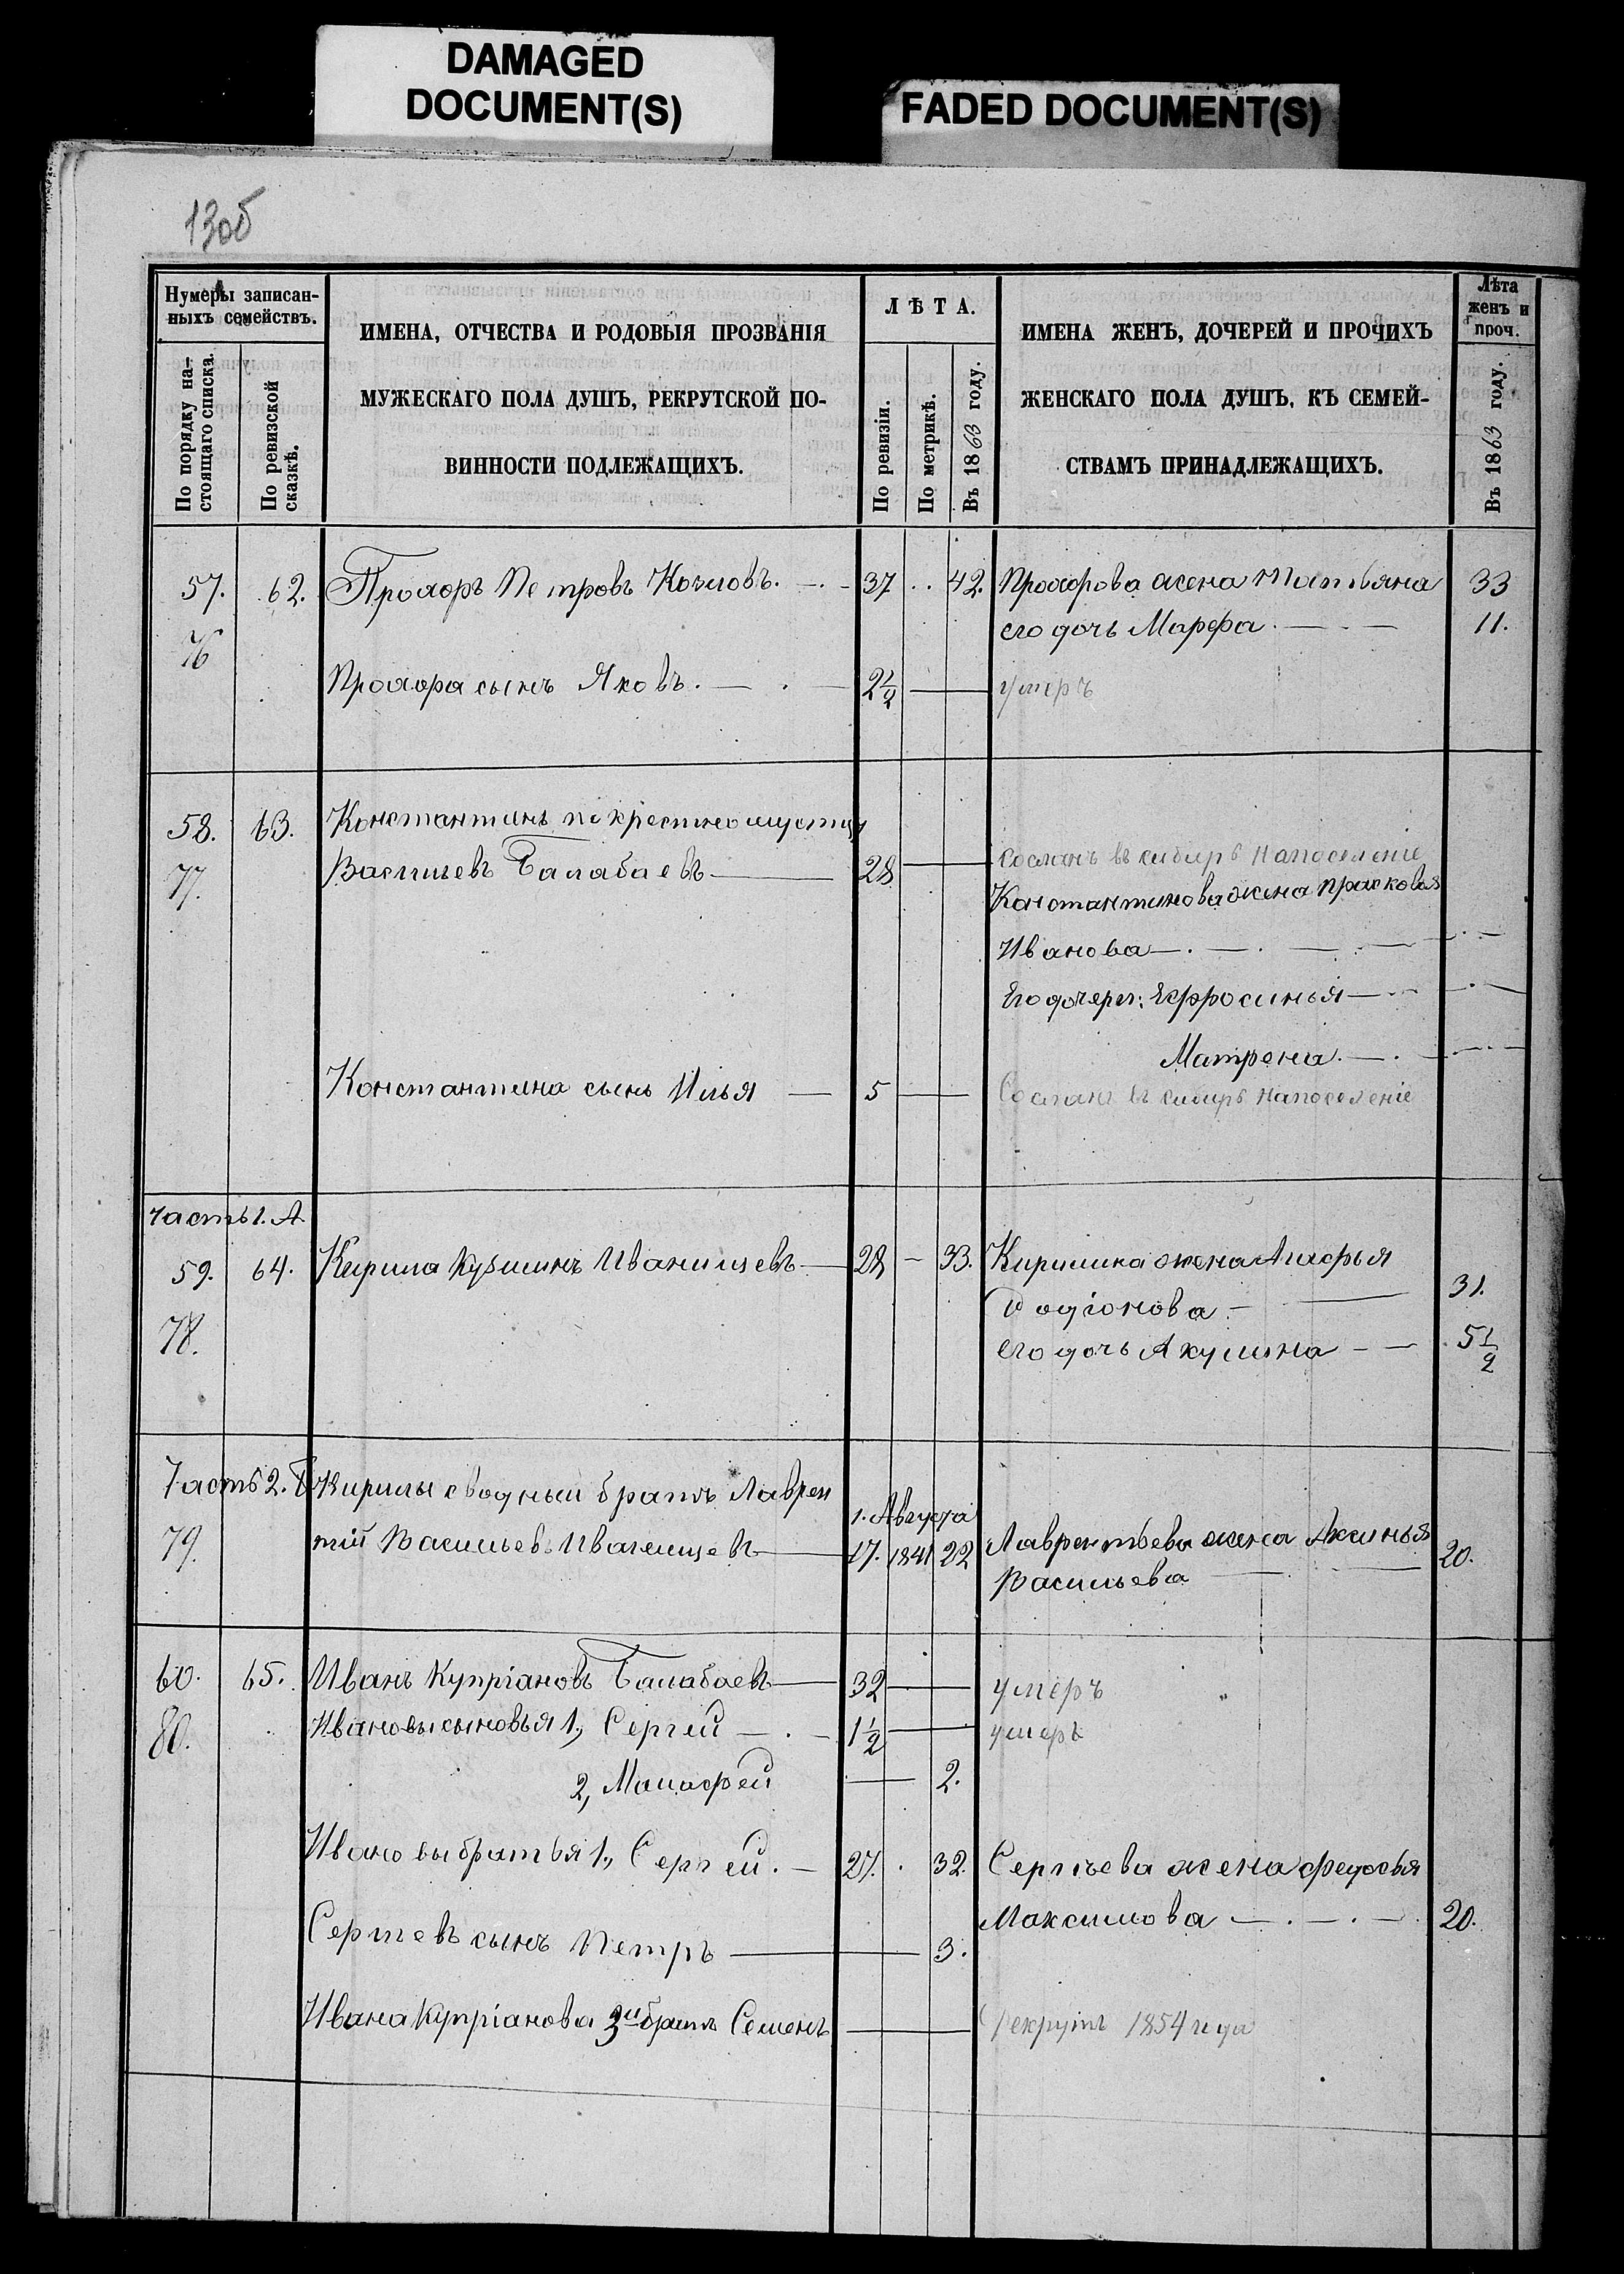 DAMAGED
DOCUMENT(S)
FADED DOCUMENT(S)
13об
Нумеры записан-
ныхъ семействъ.
По порядку на-
стоящаго списка.
По ревизской
сказкѣ.
ИМЕНА, ОТЧЕСТВА И РОДОВЫЯ ПРОЗВАНІЯ
МУЖЕСКАГО ПОЛА ДУШЪ, РЕКРУТСКОЙ ПО-
ВИННОСТИ ПОДЛЕЖАЩИХЪ.
ЛѢТА.
По ревизіи.
По метрикѣ.
Въ 1863 году.
ИМЕНА ЖЕНЪ, ДОЧЕРЕЙ И ПРОЧИХЪ
ЖЕНСКАГО ПОЛА ДУШЪ, КЪ СЕМЕЙ-
СТВАМЪ ПРИНАДЛЕЖАЩИХЪ.
Лѣта
женъ и
проч.
Въ 1863 году.
57. 62. Прохоръ Петровъ Козловъ. 37 42. Прохорова жена Татьяна 33
76 его дочь Марфа 11.
Прохора сынъ Яковъ. 2½ умеръ
58. 63. Константинъ по крестному отцу
77. Васильевъ Балабаевъ 28 сосланъ въ сибирь на поселеніе
Константинова жена Прасковья
Иванова
Его дочери: Ефросинья
Матрена
Константина сынъ Илья 5 Сосланъ въ сибирь на поселеніе
часть 1. А
59. 64. Кирила Кузминъ Иванищевъ 28 33. Кирилина жена Агафья
Родіонова 31.
78. его дочь Акулина 5½
Часть 2. Б Кирилы сводный братъ Лаврен
79. тій Васильевъ Иванищевъ 17. 1. Августа 1841 22 Лаврентьева жена Аксинья
Васильева 20.
60. 65. Иванъ Купріановъ Балабаевъ 32 умеръ
80. Ивановы сыновья 1, Сергей 1½ умеръ
2, Малафей 2.
Ивановы братья 1, Сергей. 27. 32. Сергѣева жена Федосья
Максимова 20.
Сергѣевъ сынъ Петръ 3.
Ивана Купріанова 3й братъ Семенъ рекрутъ 1854 года